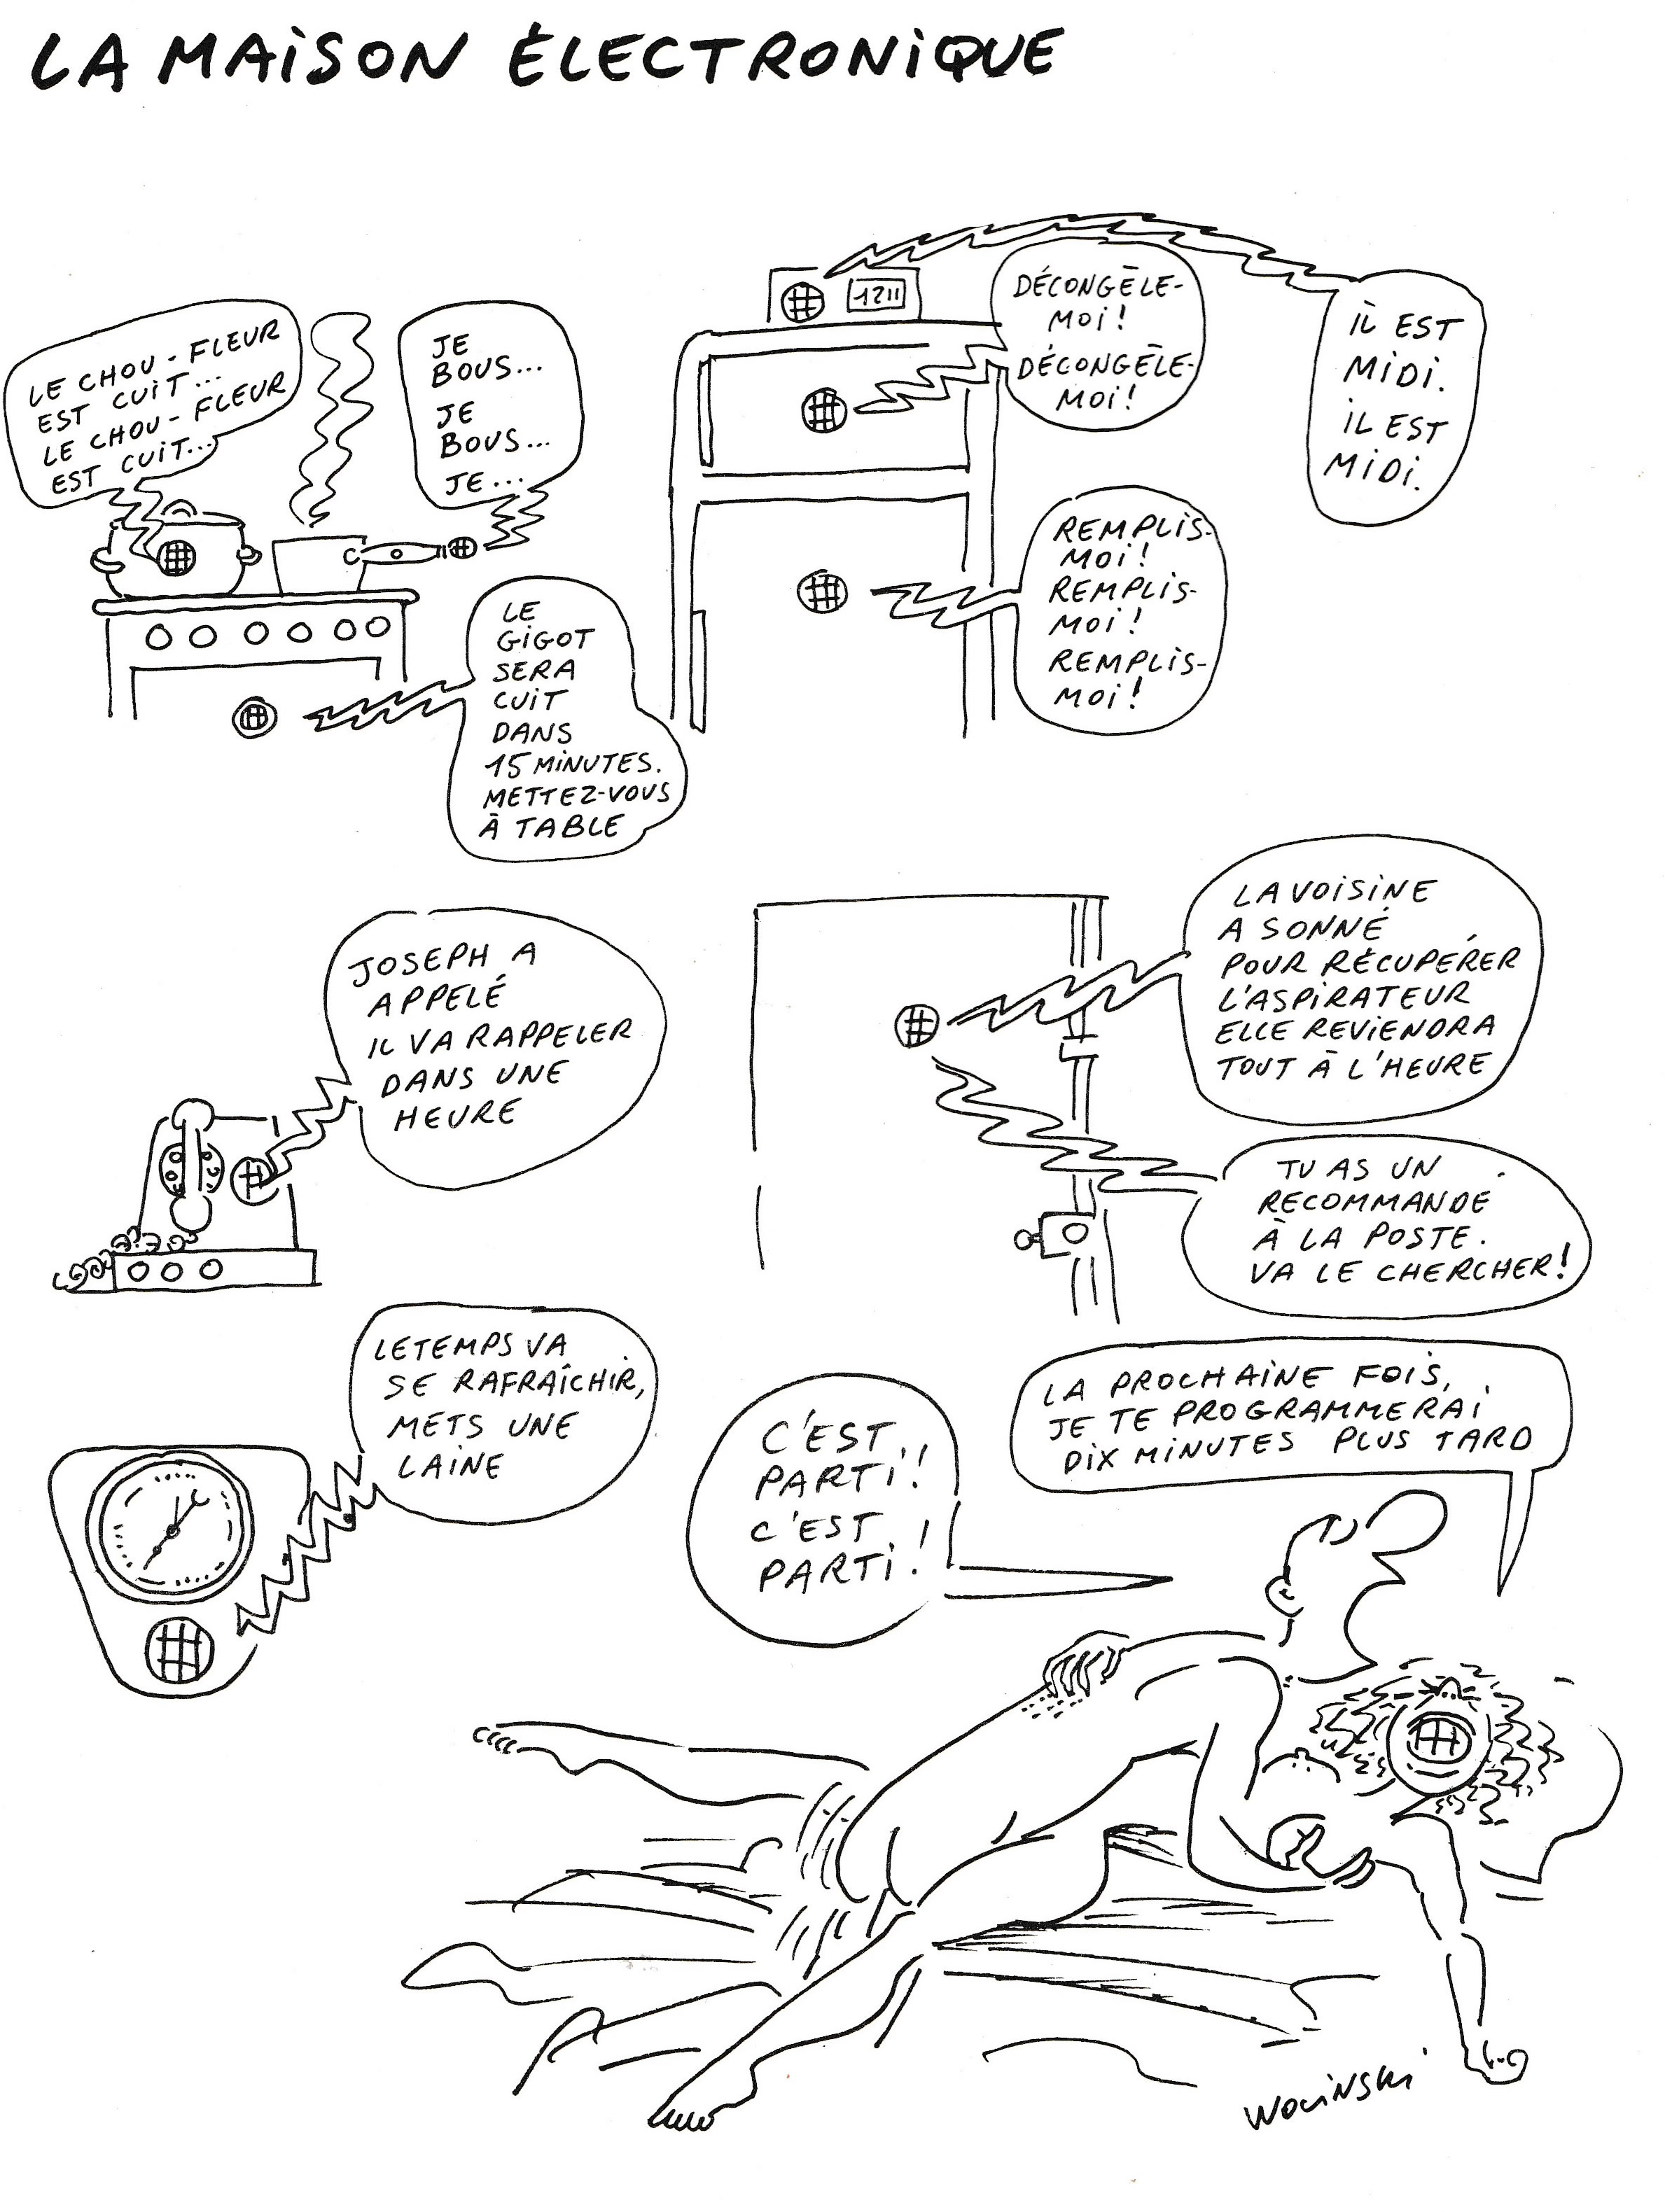 LA MAISON ÉLECTRONIQUE
LE CHOU-FLEUR
EST CUIT...
LE CHOU-FLEUR
EST CUIT...
JE
BOUS...
JE
BOUS...
JE...
LE
GIGOT
SERA
CUIT
DANS
15 MINUTES.
METTEZ-VOUS
À TABLE
1211
DÉCONGÈLE-
MOI!
DÉCONGÈLE-
MOI!
IL EST
MIDI.
IL EST
MIDI.
REMPLIS-
MOI!
REMPLIS-
MOI!
REMPLIS-
MOI!
JOSEPH A
APPELÉ
IL VA RAPPELER
DANS UNE
HEURE
LA VOISINE
A SONNÉ
POUR RÉCUPÉRER
L'ASPIRATEUR
ELLE REVIENDRA
TOUT À L'HEURE
TU AS UN
RECOMMANDÉ
À LA POSTE.
VA LE CHERCHER!
LE TEMPS VA
SE RAFRAÎCHIR,
METS UNE
LAINE
C'EST
PARTI!
C'EST
PARTI!
LA PROCHAINE FOIS,
JE TE PROGRAMMERAI
DIX MINUTES PLUS TARD
WOLINSKI